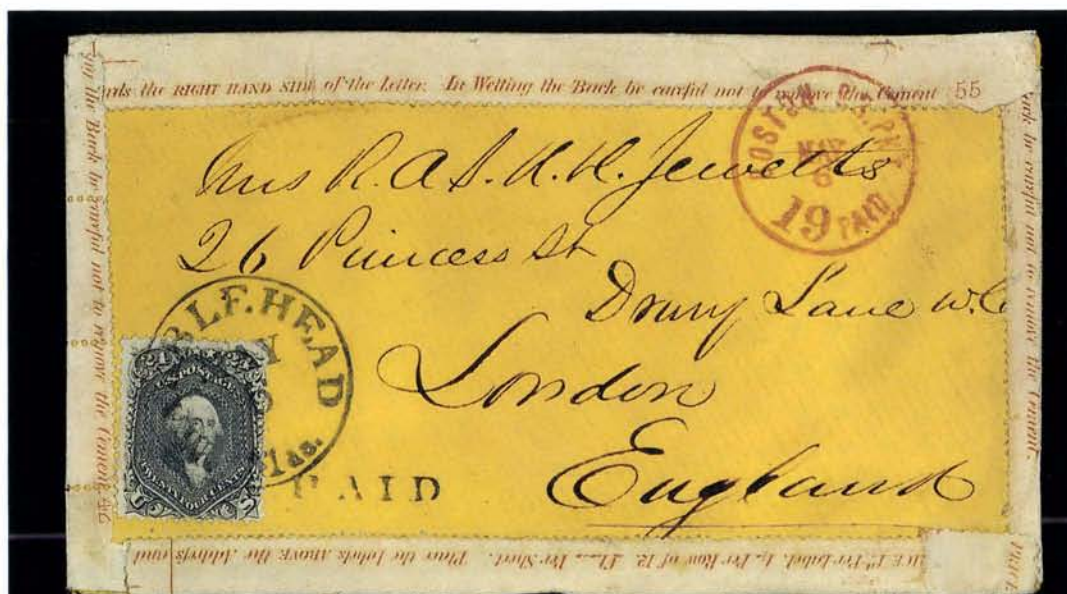 rds the RIGHT HAND SIDE of the Letter. In Wetting the Back be careful not to remove the Cement 55
BOSTON BR. PKT
MAY
6
19 PAID
R. A. & H. H. Jewett
26 Princess St
Drury Lane W.C
London
England
BLEHEAD
Y
Mas.
PAID
24 24
U.S. POSTAGE
TWENTY FOUR CENTS
U S
the Back be careful not to remove the Cement &c
ack be careful not to remove the Cement.
PRICE
ICE 1d Per Label. 1/- Per Row of 12. £1 Per Sheet. Place the Labels ABOVE the Address and